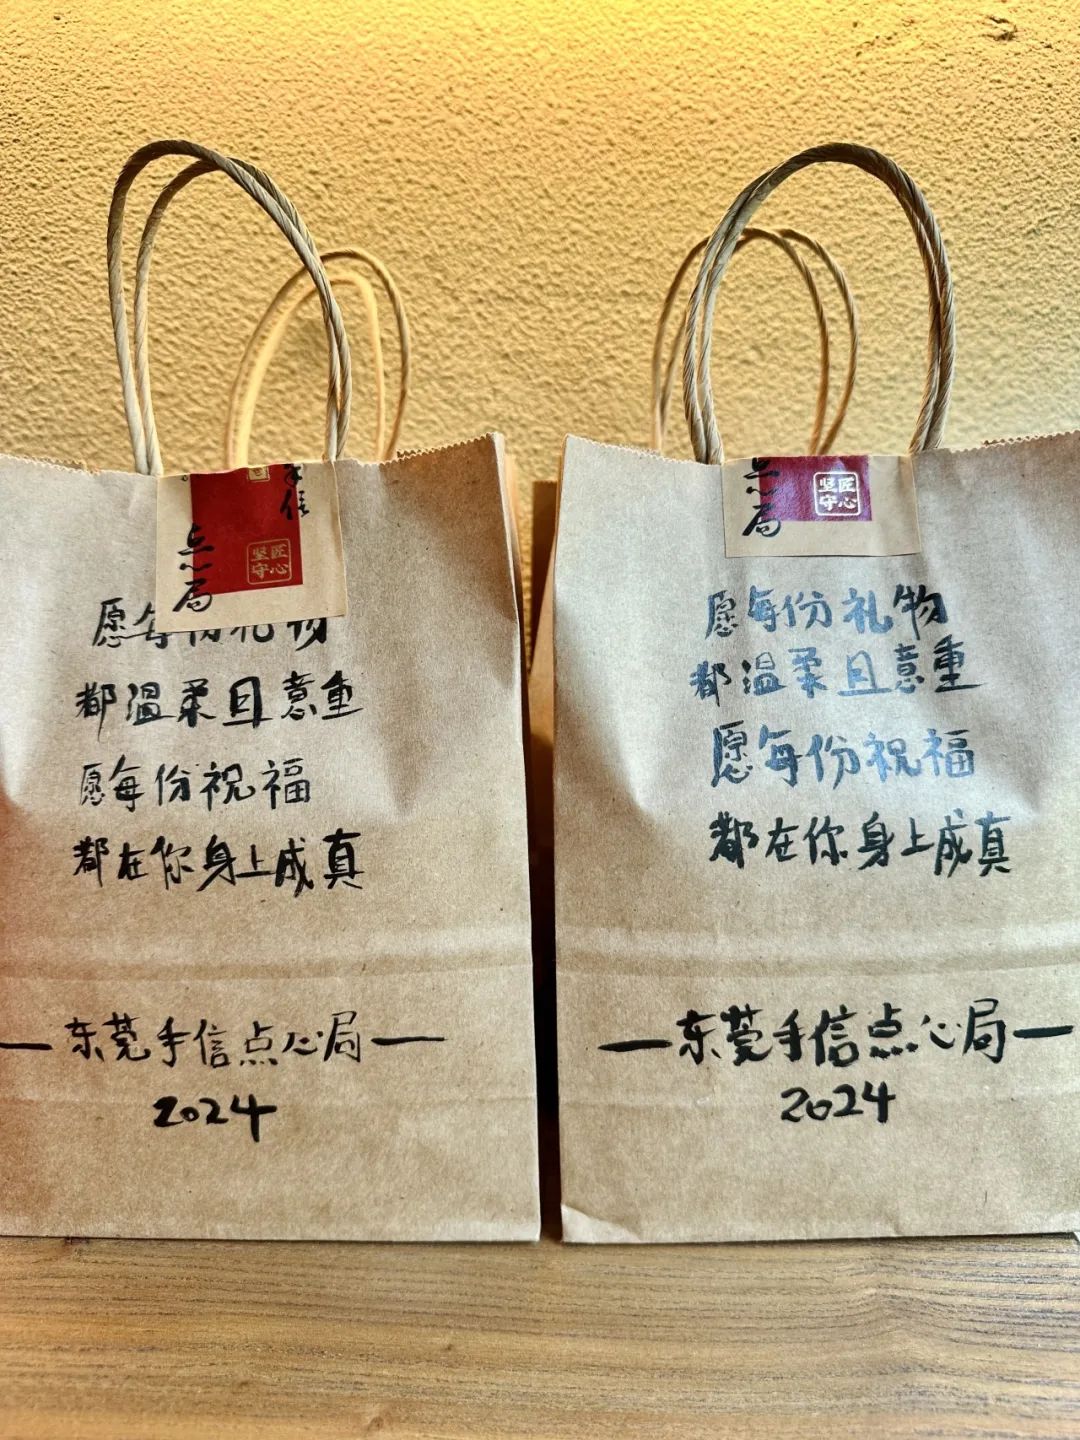 手信
点心局
坚匠
守心
愿每份礼物
都温柔且意重
愿每份祝福
都在你身上成真
—东莞手信点心局—
2024
点心局
坚匠
守心
愿每份礼物
都温柔且意重
愿每份祝福
都在你身上成真
—东莞手信点心局—
2024